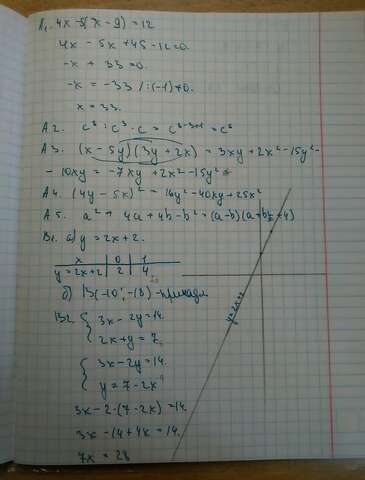 А1. 4x - 5(x - 9) = 12
4x - 5x + 45 - 12 = 0.
-x + 33 = 0.
-x = -33 / :(-1) ≠ 0.
x = 33.
А2. c⁸ : c³ · c = c⁸⁻³⁺¹ = c⁶
А3. (x - 5y)(3y + 2x) = 3xy + 2x² - 15y² -
- 10xy = -7xy + 2x² - 15y²
А4. (4y - 5x)² = 16y² - 40xy + 25x²
А5. a² + 4a + 4b - b² = (a-b)(a+b+4)
В1. а) y = 2x + 2.
x | 0 | 1
y = 2x + 2 | 2 | 4
б) В(-10; -18) - принадл
y = 2x + 2
В2 { 3x - 2y = 14.
2x + y = 7.
{ 3x - 2y = 14.
y = 7 - 2x
3x - 2·(7 - 2x) = 14.
3x - 14 + 4x = 14.
7x = 28